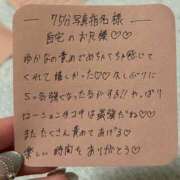 75分写真指名様
自宅のお兄様♡♡
ゆかなの責めでめちゃくちゃ感じて
くれて嬉しかった♡♡久しぶりに
らっ
ローションヌコヌは最強だね♡
またたくさん責めてあげる♡
楽しい時間をありがとう♡